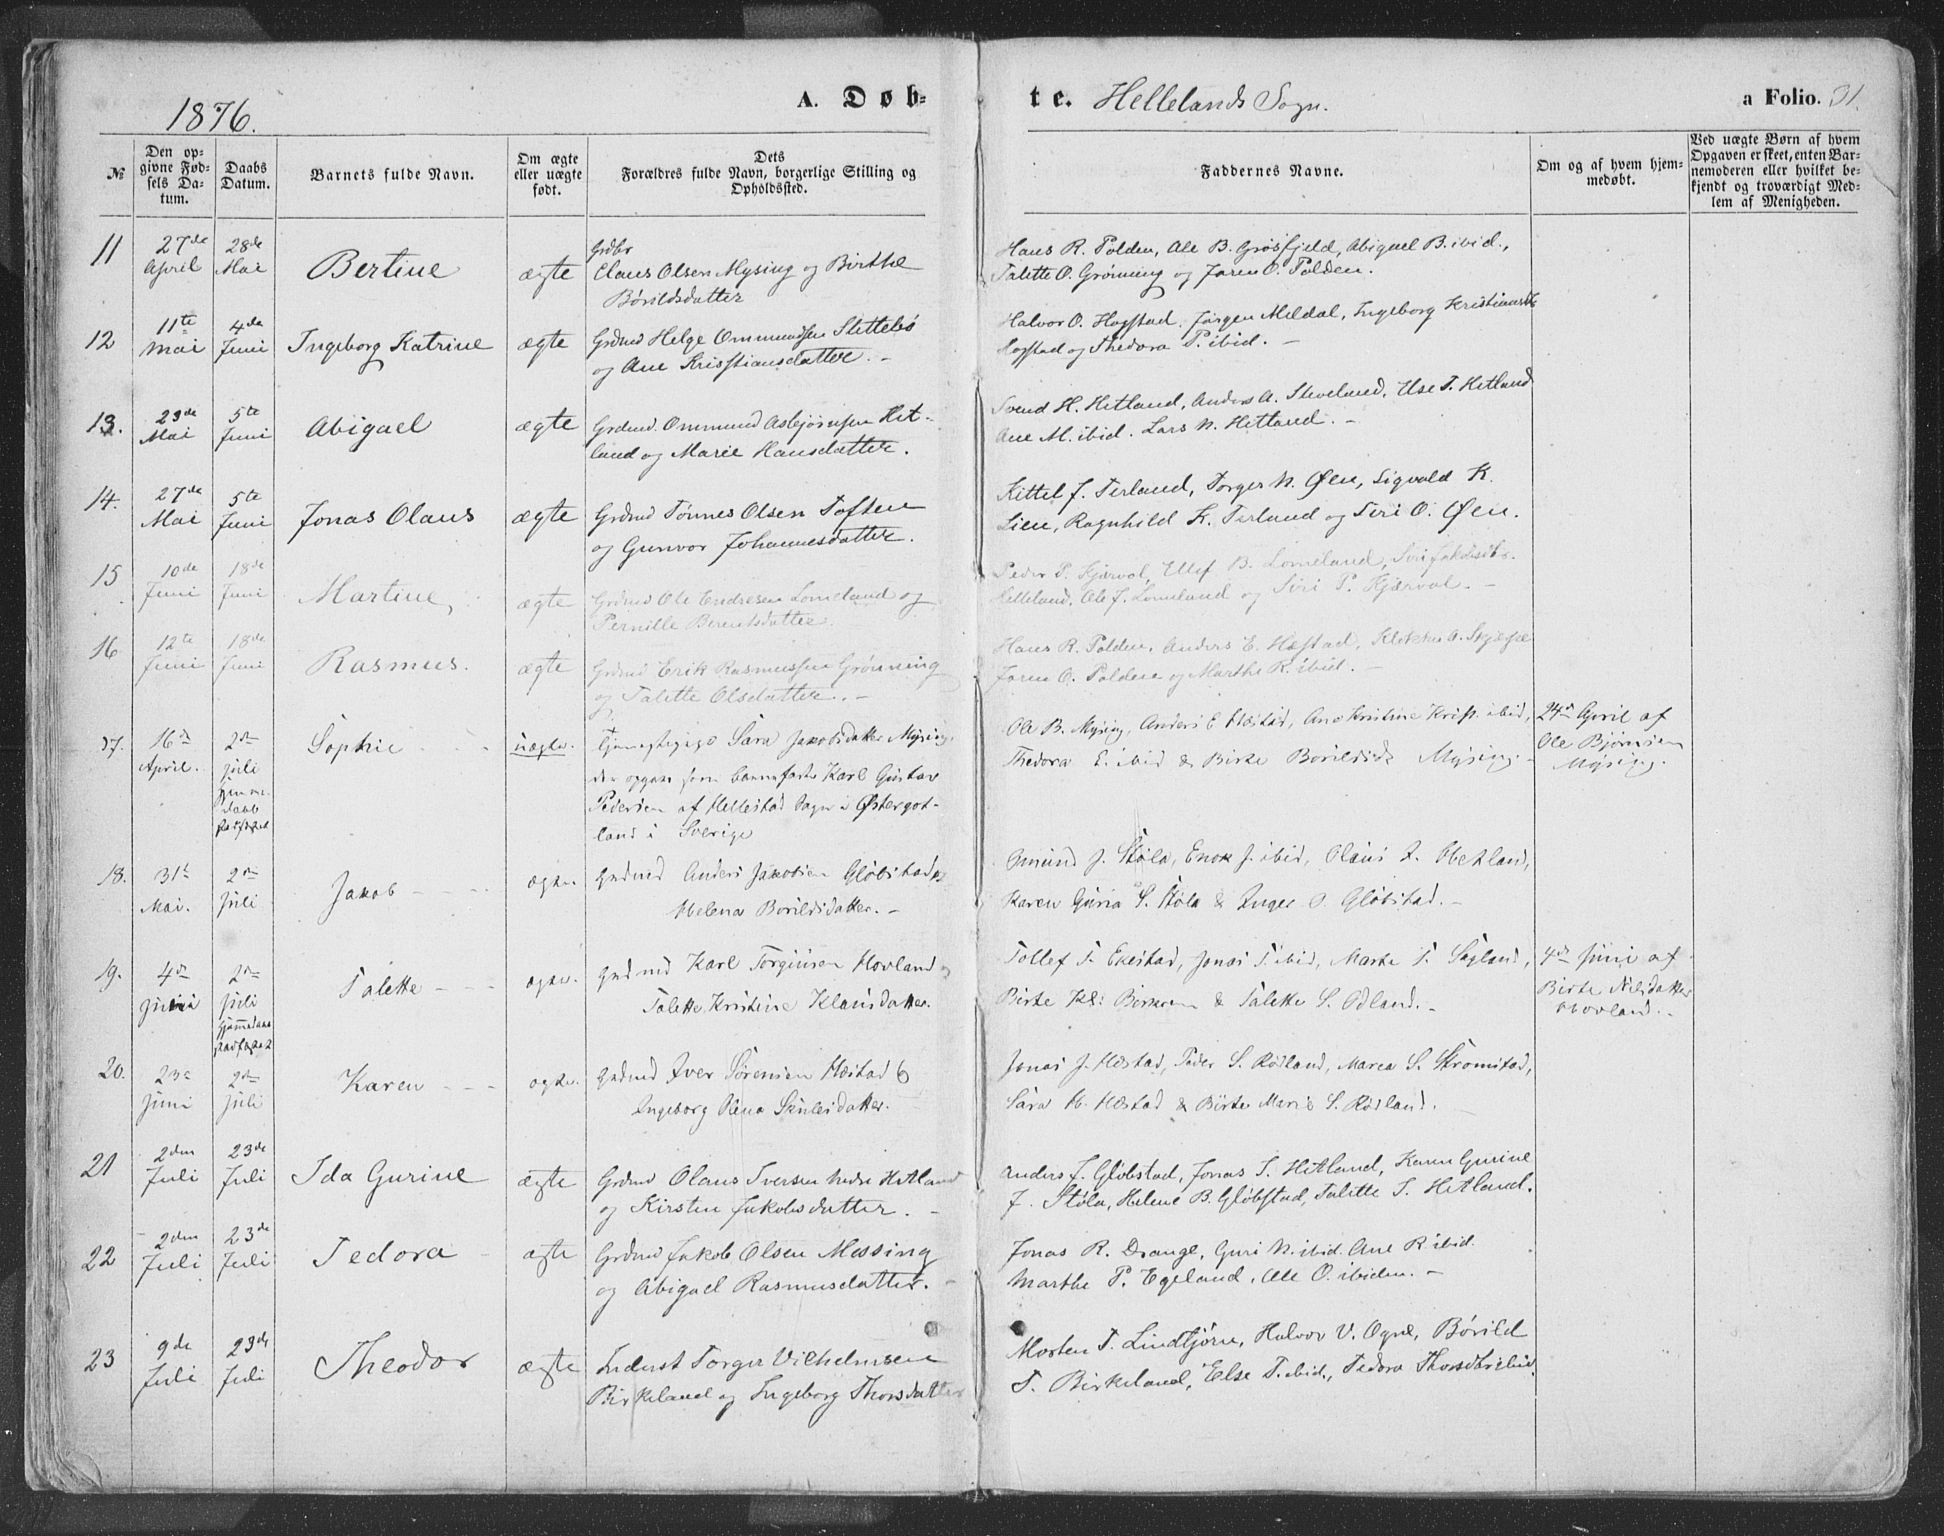 1876.
A. Døb-
te. Hellelands Sogn.
a Folio. 31.
№
Den op-
givne Fød-
sels Da-
tum.
Daabs
Datum.
Barnets fulde Navn.
Om ægte
eller uægte
født.
Dets
Forældres fulde Navn, borgerlige Stilling og
Opholdssted.
Faddernes Navne.
Om og af hvem hjem-
medøbt.
Ved uægte Børn af hvem
Opgaven er skeet, enten Bar-
nemoderen eller hvilket be-
kjendt og troværdigt Med-
lem af Menigheden.
11
27de
April
28de
Mai
Bertine
ægte
Grdbr
Claus Olsen Mysing og Birthe
Børildsdatter
Hans R. Polden, Ole B. Grøsfjeld, Abigael B. ibid.,
Talette O. Grønning og Joren O. Polden.
12
11te
Mai
4de
Juni
Ingeborg Katrine
ægte
Grdmd Helge Ommundsen Slettebø
og Ane Kristiansdatter. -
Halvor O. Hogstad. Jørgen Meldal, Ingeborg
Hogstad og Thedora P. ibid. -
13.
23de
Mai
5te
Juni
Abigael
ægte
Grdmd. Ommund Asbjørnsen Het-
land og Marie Hansdatter.
Svend H. Hetland, Anders A. Skveland, Else T. Hetland
Ane M. ibid. Lars N. Hetland. -
14.
27de
Mai
5te
Juni
Jonas Olaus
ægte
Grdmd Tønnes Olsen Toften
og Gunvor Johannesdatter.
Kittel J. Terland, Torger N. Øen, Sigvald K.
Lien, Ragnhild K. Terland og Siri O. Øen.
15
10de
Juni
18de
Juni
Martine
ægte
Grdmd Ole Endresen Lomeland og
Pernille Berentsdatter.
Peder P. Kjærval, Ellef B. Lomeland,
Helleland, Ole J. Lomeland og Siri P. Kjærval. -
16
12te
Juni
18de
Juni
Rasmus.
ægte
Grdmd Erik Rasmussen Grønning
og Talette Olsdatter. -
Hans R. Polden, Anders E. Hæstad, Klokker A.
Joren O. Polden og Marthe R. ibid. -
17.
16de
April.
2den
juli
Sophie
uægte.
Sara Jakobsdatter Mysing.
der opgav som barnefader Karl Gustav
Pedersen af Hellestad Sogn i Østergot-
land i Sverige
Ole B. Mysing, Anders E Hæstad, Ane Kristine Krist. ibid,
Thedora E. ibid & Birte Børildsd. Mysing.
24de April af
Ole Bjørnsen
Mysing.
18.
31te
Mai.
2den
juli
Jakob
ægte.
Grdmd Anders Jakobsen Gløbstad og
Helena Borildsdatter. -
Omund J. Støle, Enok J. ibid, Olaus I. Hetland,
Karen Guria S. Støle & Inger S. Gløbstad. -
19.
4de
juni
2den
juli
Talette
ægte.
Grdmd Karl Torgiusen Hovland og
Talette Kristine Klausdatter.
Tollef T. Ekestad, Jonas T. ibid, Marte T. Sagland,
Birte Kl: & Talette S. Odland. -
4de juni af
Birte Nilsdatter
Hovland.
20.
23de
juni
2den
juli
Karen
ægte.
Grdmd Iver Sørensen Hæstad &
Ingeborg Elena Skulesdatter.
Jonas J. Hæstad, Peder S. Rødland, Marea S. Strømstad,
Sara H. Hæstad & Birte Marie S. Rødland.
21
2den
Juli
23de
Juli
Ida Gurine
ægte
Grdmd Olaus Iversen Nedre Hetland
og Kirsten Jakobsdatter. -
Anders J. Gløbstad, Jonas I. Hetland, Karen Gurine
J. Støle, Helene B. Gløbstad, Talette I. Hetland.
22
2den
Juli
23de
Juli
Tedora
ægte
Grdmd Jakob Olsen Messing
og Abigael Rasmusdatter. -
Jonas R. Drange, Guri N. ibid. Ane R. ibid.
Marthe P. Egeland, Ole O. ibiden. -
23
9de
Juli
23de
Juli
Theodor
ægte
Inderst Torger Vilhelmsen
Birkeland og Ingeborg Thorsdatter
Morten T. Lindtjørn, Halvor V. Ogne, Børild
T. Birkeland, Else T. ibid., Tedora